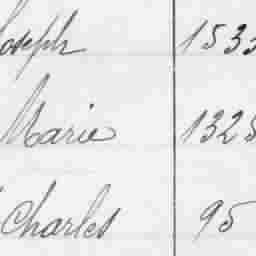 Joseph 1533
Marie 1325
Charles 95